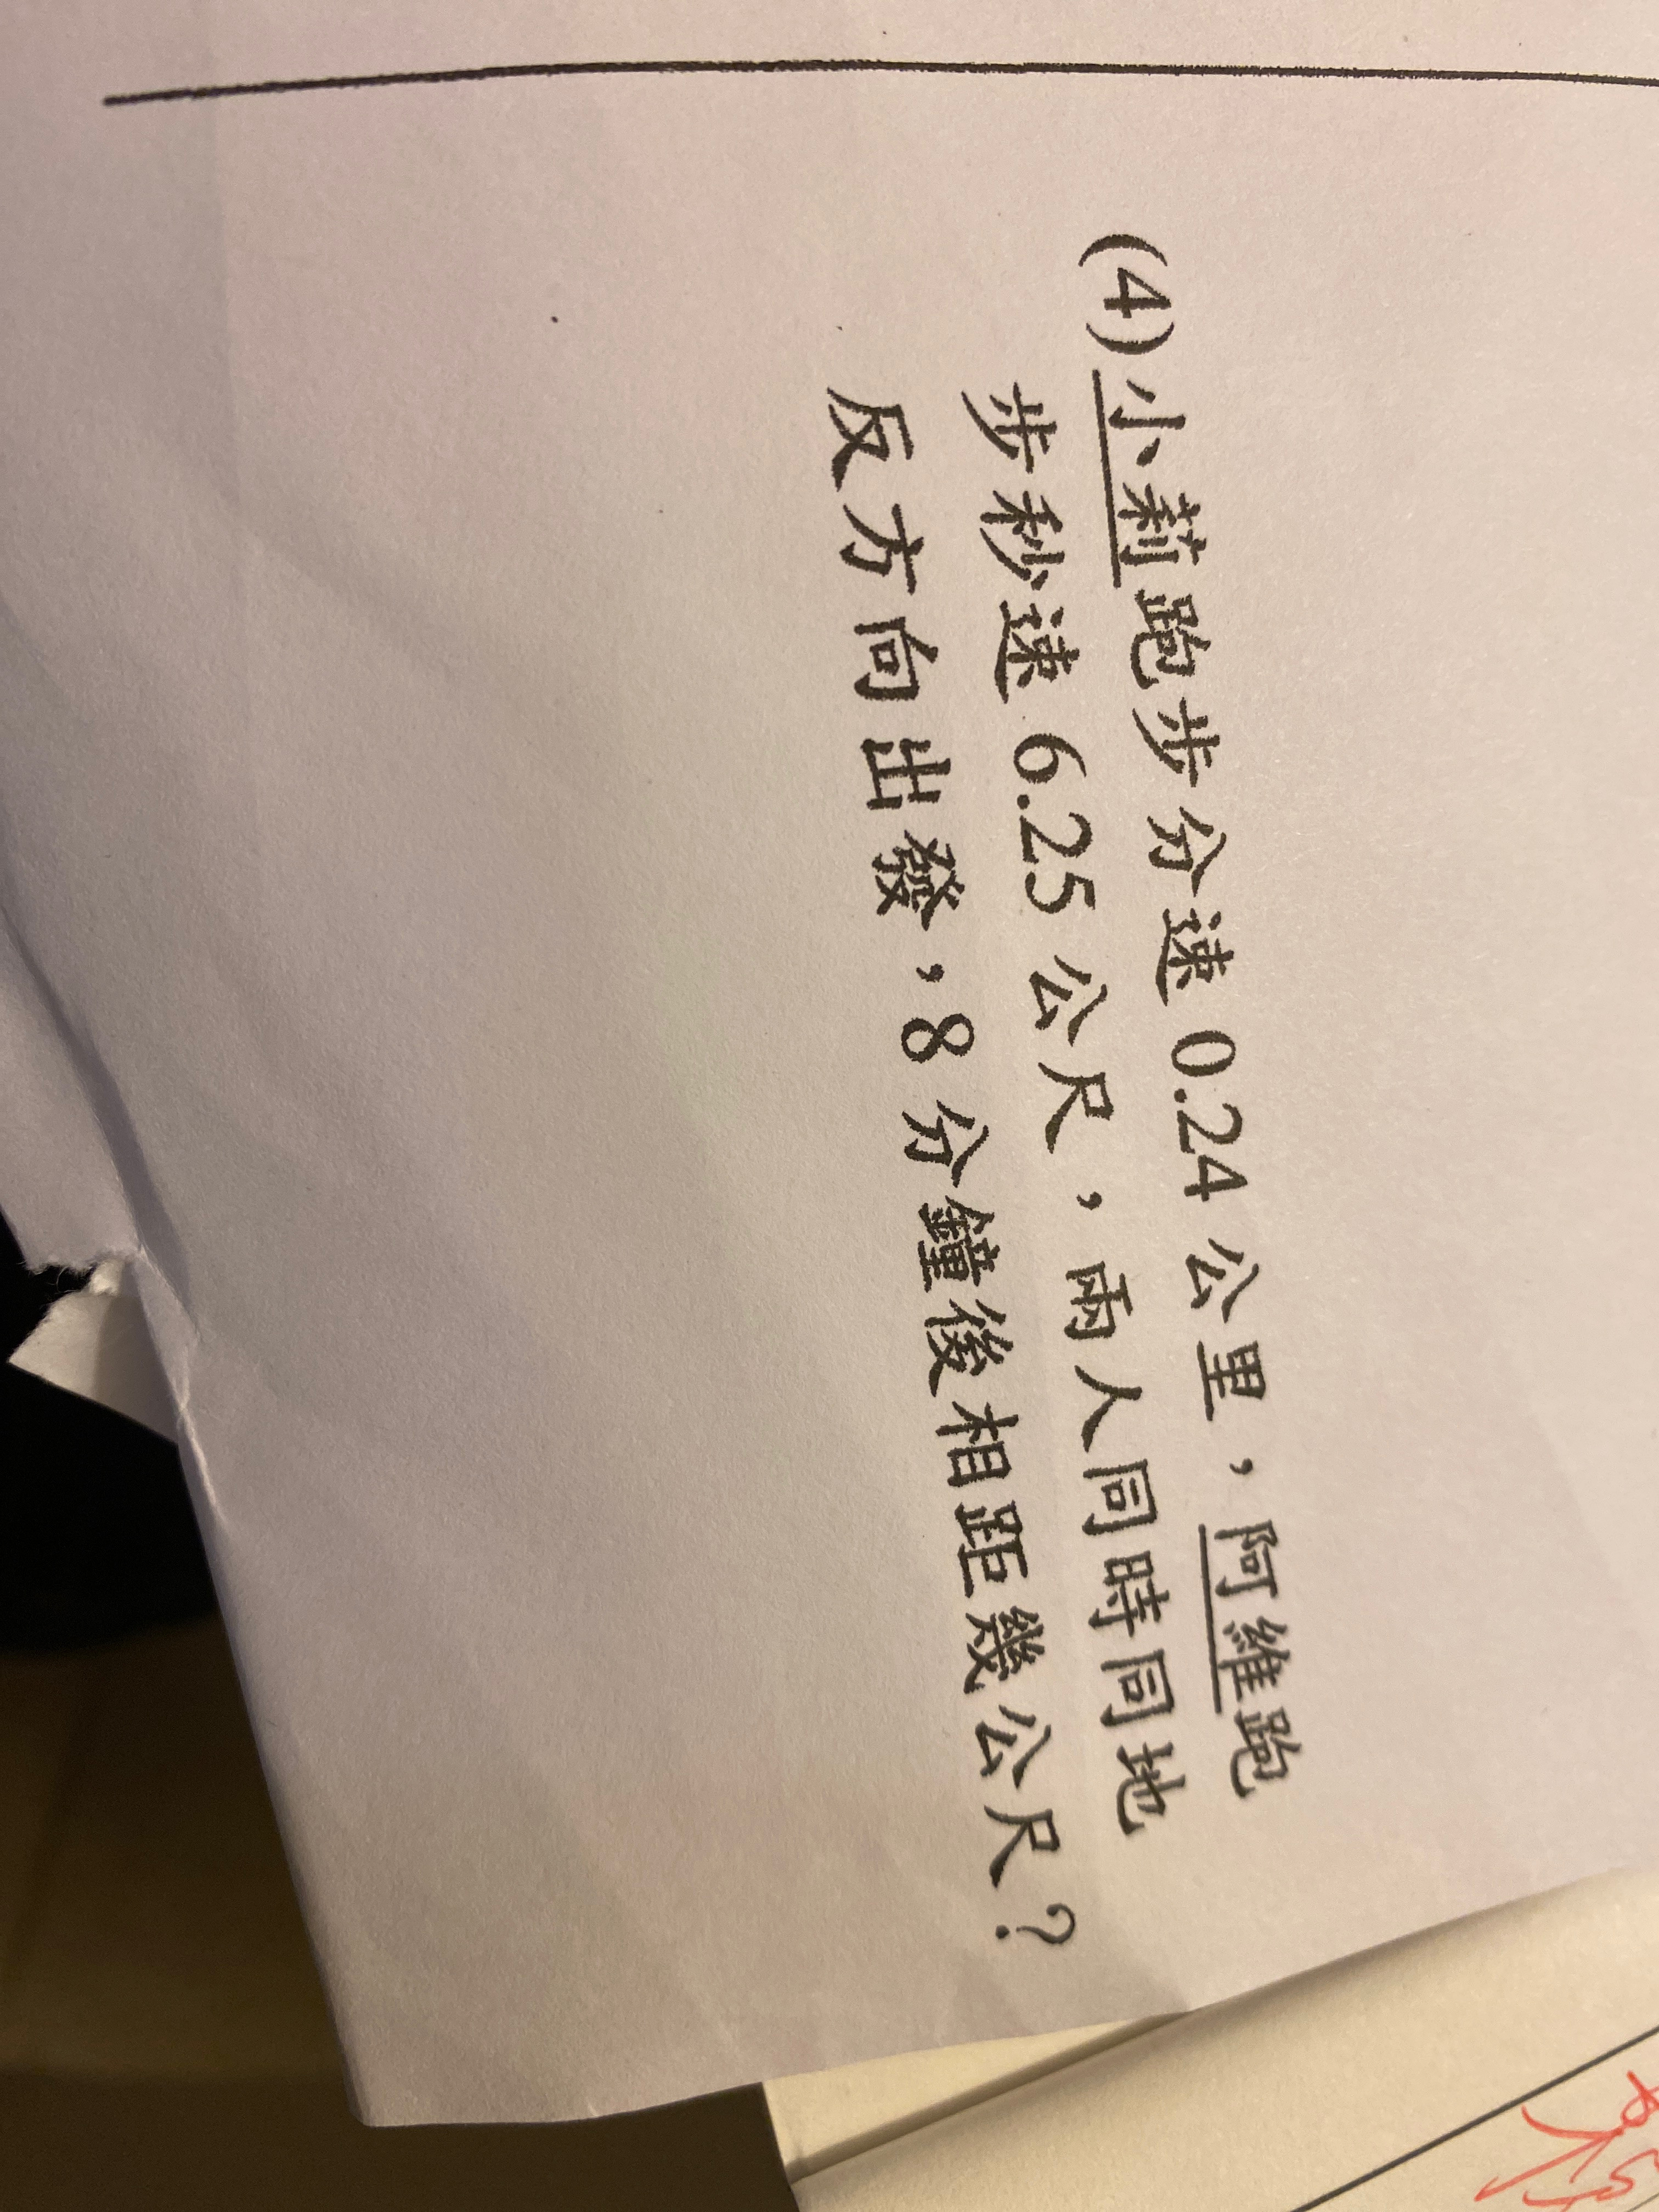 (4)小莉跑步分速 0.24 公里，阿維跑
步秒速 6.25 公尺，兩人同時同地
反方向出發，8 分鐘後相距幾公尺？